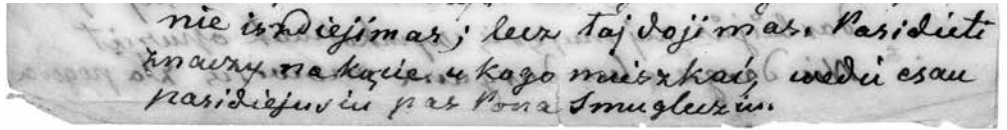 nie iszdiejimas; lecz tajdojimas. Pasidieti
znaczy na kącie u kogo mieszkać, wedu esau
pasidiejusiu pas Pona Smugleziu.